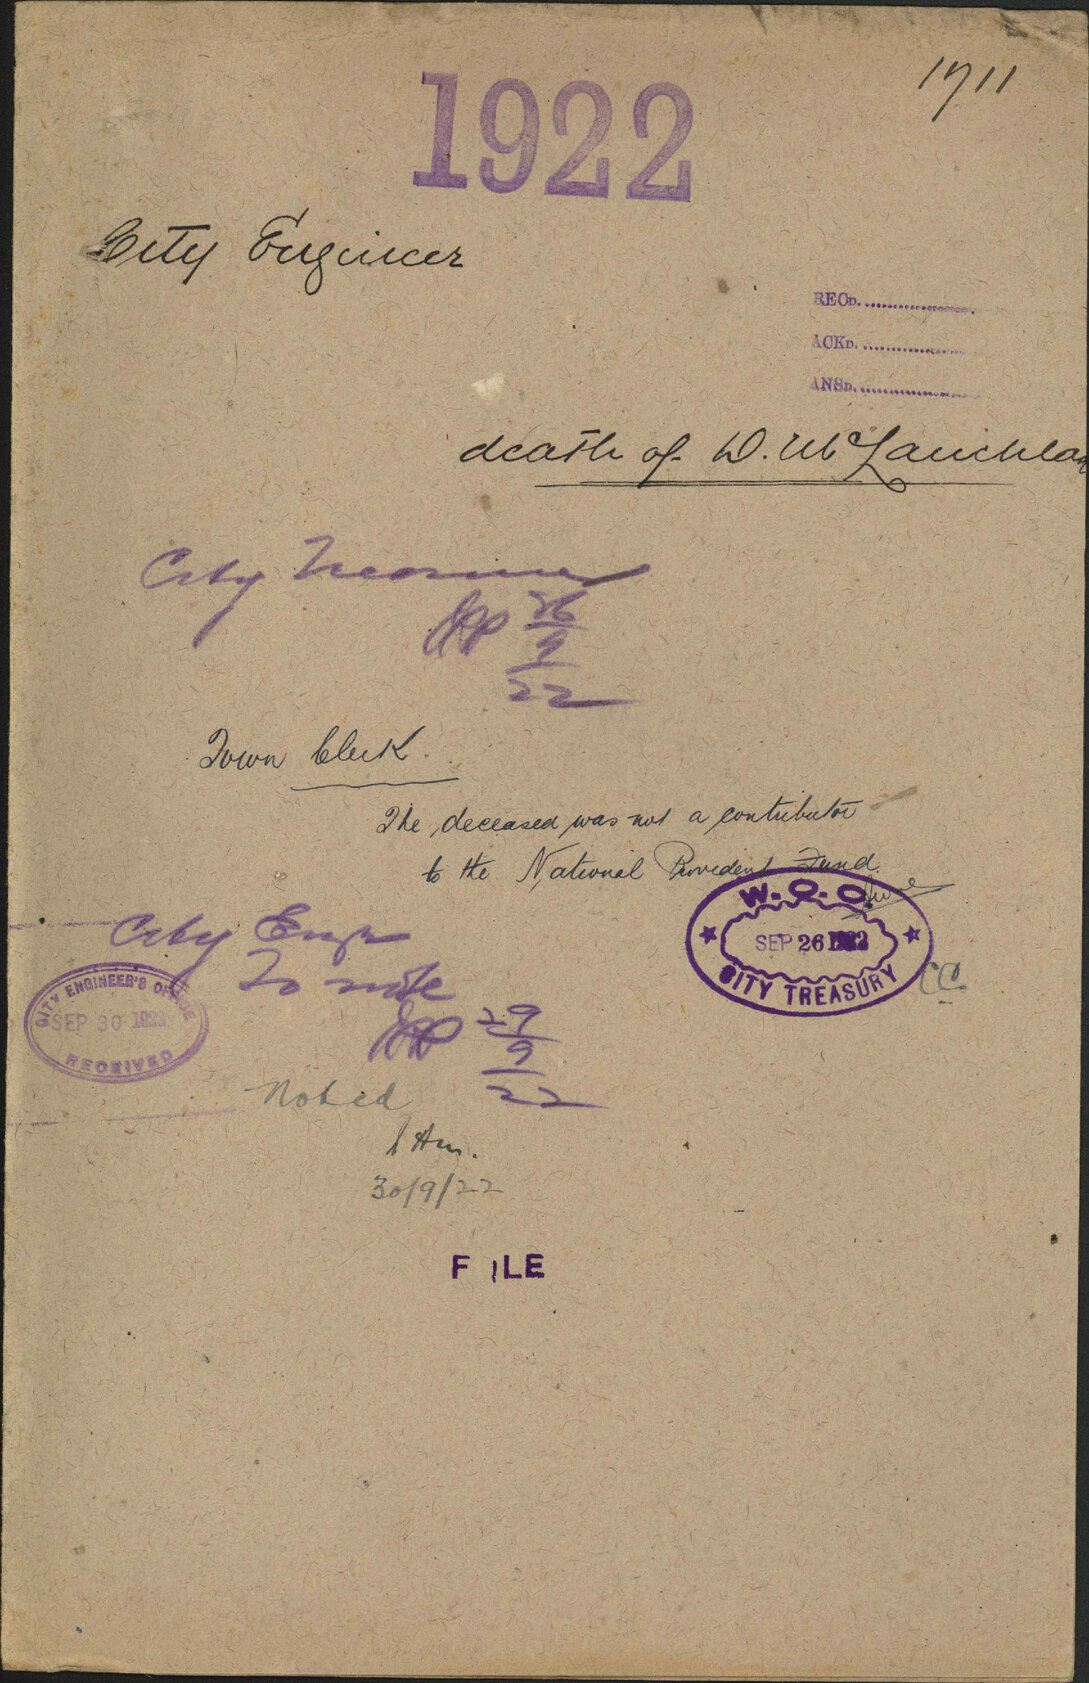 1711
1922
City Engineer
RECD.
ACKD.
ANSD.
death of D. McLauchlan
City Treasurer
26
9
22
Town Clerk.
The deceased was not a contributor
to the National Provident Fund.
W.C.C.
SEP 26 1922
CITY TREASURY
City Engr
To note
CITY ENGINEER'S OFFICE
SEP 30 1922
RECEIVED
29
9
22
Noted
30/9/22
FILE